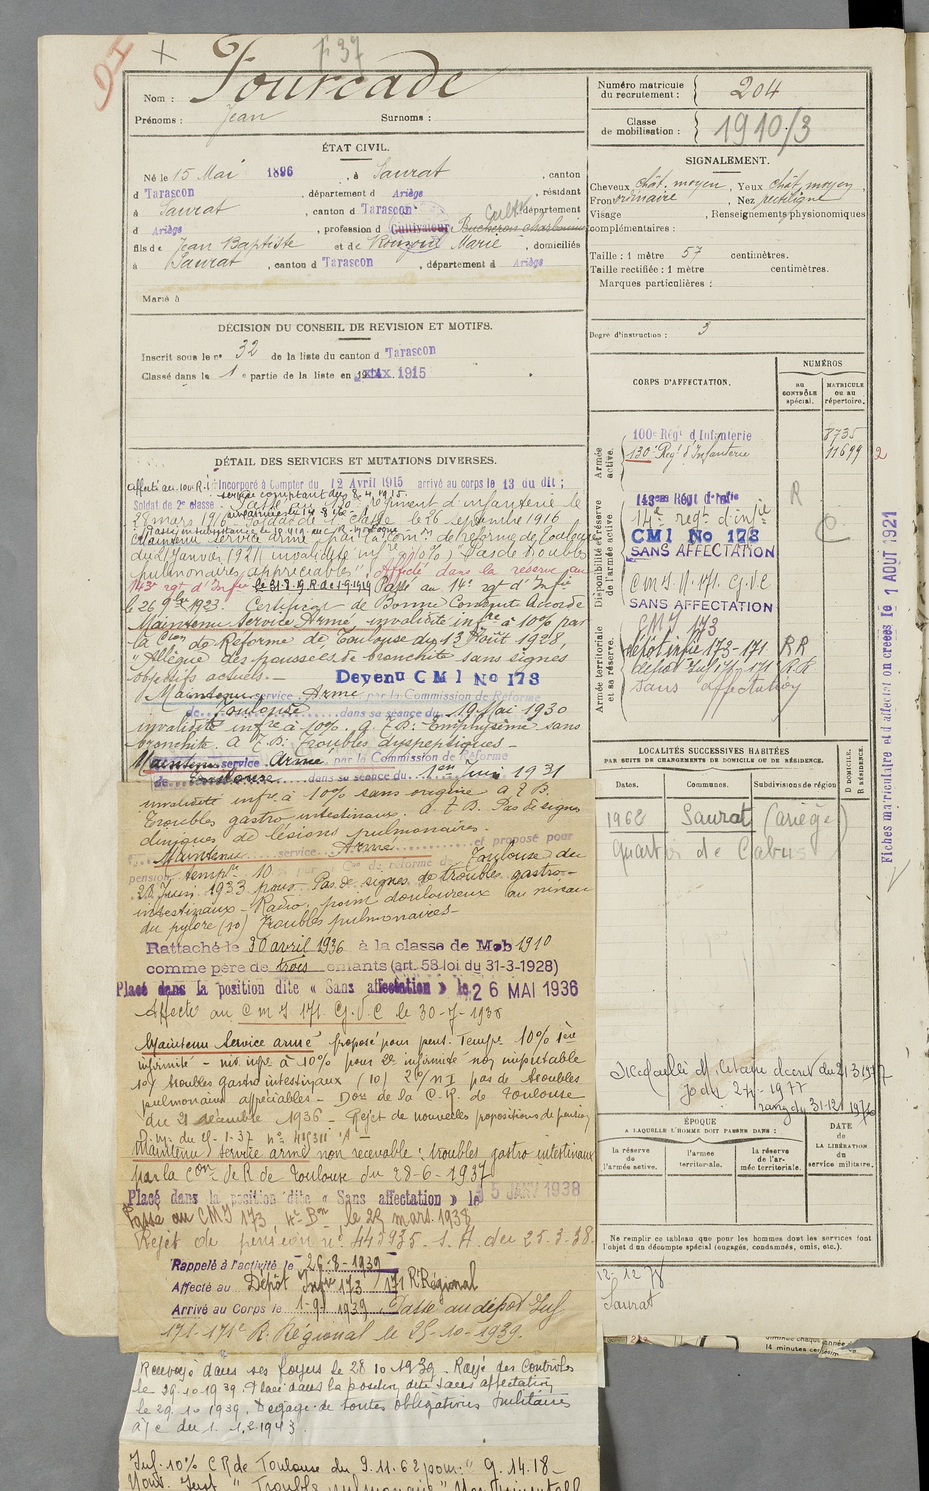 137
Nom : Fourcade
Prénoms : Jean Surnoms :
Numéro matricule du recrutement : 204
Classe de mobilisation : 1910/3
ÉTAT CIVIL.
Né le 15 Mai 1896, à Saurat, canton
d Tarascon, département d Ariège, résidant
à Saurat, canton d Tarascon, département
d Ariège, profession d Cultivateur Cult
fils de Jean Baptiste et de Rouzoul Marie, domiciliés
à Saurat, canton d Tarascon, département d Ariège
Marié à
SIGNALEMENT.
Cheveux chât. moyen, Yeux chât. moyen,
Front ordinaire, Nez rectiligne
Visage , Renseignements physionomiques
complémentaires :
Taille : 1 mètre 57 centimètres.
Taille rectifiée : 1 mètre centimètres.
Marques particulières :
Degré d'instruction : 3
DÉCISION DU CONSEIL DE REVISION ET MOTIFS.
Inscrit sous le no 32 de la liste du canton d Tarascon
Classé dans la 1 e partie de la liste en 1915
CORPS D'AFFECTATION.
NUMÉROS
AU CONTRÔLE spécial.
MATRICULE OU AU répertoire.
Armée active.
100e Régt d'Infanterie 8735
130e Régt d'Infanterie 11699
Disponibilité et réserve de l'armée active.
143eme Régt d'Infie
14e regt d'infie
CMI No 173
SANS AFFECTATION
CMI N. 171. G.V.C
SANS AFFECTATION
Armée territoriale et sa réserve.
CMI 173
dépôt infie 173-171 RR
dépôt Inf 171-171e R.R
Sans affectation
R
C
2
Fiches matriculaire et d'affectation créées le 1 AOUT 1921
DÉTAIL DES SERVICES ET MUTATIONS DIVERSES.
Affecté au 100 R.I. Incorporé à Compter du 12 Avril 1915 arrivé au corps le 13 du dit ;
service comptant du 8.4.1915.
Soldat de 2e classe. Passé au 130e régiment d'infanterie le
29 mars 1916. Soldat de 1e classe le 26 septembre 1916
Maintenu service armé par la Comon de réforme de Toulouse
du 21 Janvier 1921 invalidité infre à 10% "Pas de troubles
pulmonaires appréciables". Affecté dans la réserve au
143e rgt d'Infie Passé au 14e rgt d'Infie
le 26 9bre 1923. Certificat de Bonne Conduite Accordé
Maintenu Service Armé, invalidité infre à 10% par
la Cion de Réforme de Toulouse du 13 Août 1928,
"Allègue des poussées de bronchite sans signes
objectifs actuels. — Devenu CMI No 173
Maintenu service Armé par la Commission de Réforme
de Toulouse dans sa séance du 19 Mai 1930
invalidité infre à 10%. A.T.B. Emphysème sans
bronchite. A.T.B. Troubles dyspeptiques —
Maintenu service Armé par la Commission de Réforme
de Toulouse dans sa séance du 1er Juin 1931
invalidité infre à 10% sans origine A.T.B.
troubles gastro intestinaux. A.T.B. Pas de signes
cliniques de lésions pulmonaires.
Maintenu service Armé et proposé pour
pension tempre 10 Con de réforme de Toulouse du
20 Juin 1933 pour Pas de signes de troubles gastro-
intestinaux - Radio: point douloureux au niveau
du pylore (10) Troubles pulmonaires —
Rattaché le 30 avril 1936 à la classe de Mob 1910
comme père de trois enfants (art. 58 loi du 31-3-1928)
Placé dans la position dite « Sans affectation » le 26 MAI 1936
Affecté au CMI 171 G.V.C le 30-7-1936
Maintenu Service armé proposé pour pens. Tempre 10% 1ère
infirmité - inv. infre à 10% pour 2e infirmité non imputable
1o) troubles gastro intestinaux (10) 2o) N I pas de troubles
pulmonaires appréciables - Don de la C.R. de Toulouse
du 21 décembre 1936 - Rejet de nouvelles propositions de pension
Maintenu service armé non recevable, troubles gastro intestinaux
par la Con de R de Toulouse du 28-6-1937
Placé dans la position dite « Sans affectation » le 15 JANV 1938
Passé au CMI 173, 4e Bon, le 29 mars. 1938
Rejet de pension no 443935. S.A. du 25-3-38.
Rappelé à l'activité le 26-8-1939
Affecté au Dépôt Infie 173/171 R. Régional
Arrivé au Corps le 1-9-1939. Passé au dépôt Inf
171-171e R. Régional le 25-10-1939.
Renvoyé dans ses foyers le 28 10 1939. Rayé des Contrôles
le 29.10.1939. Placé dans la position dite sans affectation
le 29.10.1939. Dégagé de toutes obligations militaires
à/c du 1.1.1943.
Inf. 10% CR de Toulouse du 9.11.62 pour " 9.14.18 —
LOCALITÉS SUCCESSIVES HABITÉES
PAR SUITE DE CHANGEMENTS DE DOMICILE OU DE RÉSIDENCE.
Dates. Communes. Subdivisions de région D DOMICILE. R RÉSIDENCE.
1962 Saurat (Ariège)
quartier de Cabus
Médaille Militaire décret du 21.3.1977
rang du 31.12.1976
ÉPOQUE
A LAQUELLE L'HOMME DOIT PASSER DANS :
la réserve de l'armée active.
l'armée territoriale.
la réserve de l'armée territoriale.
DATE de LA LIBÉRATION du service militaire.
Ne remplir ce tableau que pour les hommes dont les services font
l'objet d'un décompte spécial (engagés, condamnés, omis, etc.).
12.12.78
Saurat
14 minutes